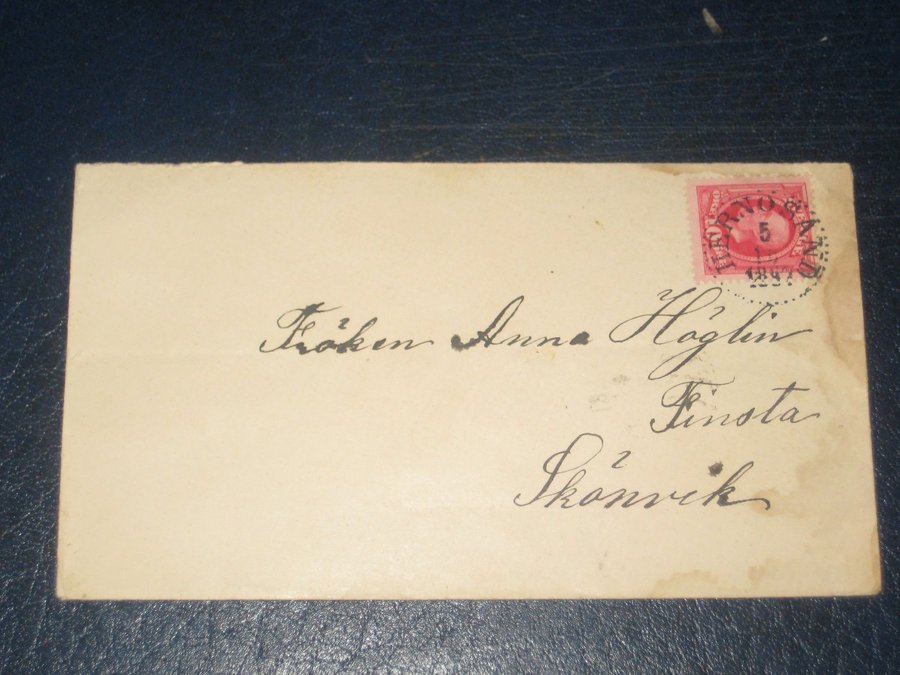 HERNÖSAND
5
1897
Fröken Anna Höglin
Finsta
Skönvik